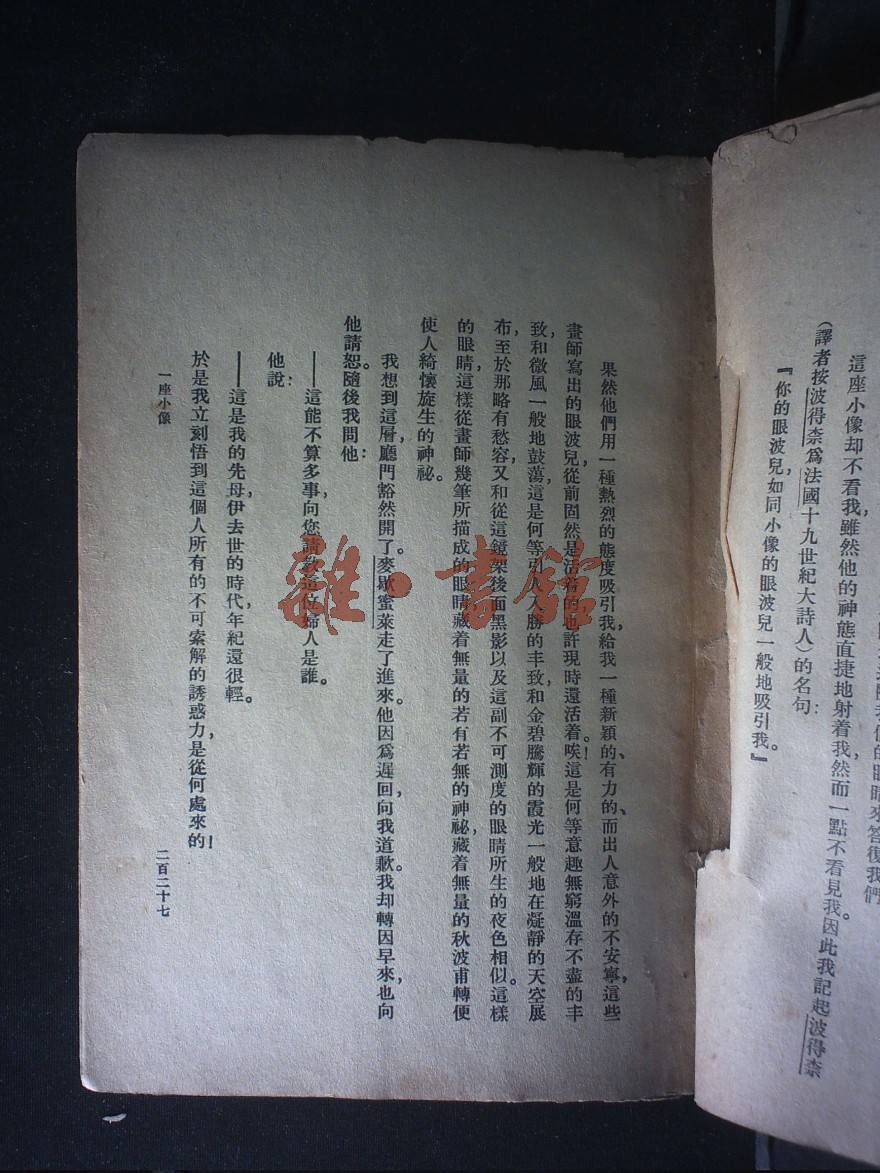 這座小像却不看我，雖然他的神態直捷地射着我，然而一點不看見我。因此我記起波得柰
（譯者按波得柰爲法國十九世紀大詩人）的名句：
『你的眼波兒，如同小像的眼波兒一般地吸引我。』
果然他們用一種熱烈的態度吸引我，給我一種新穎的、有力的、而出人意外的不安寧，這些
畫師寫出的眼波兒，從前固然是活着的，也許現時還活着。唉！這是何等意趣無窮溫存不盡的丰
致，和微風一般地鼓蕩，這是何等引人入勝的丰致，和金碧騰輝的霞光一般地在凝靜的天空展
布，至於那略有愁容，又和從這鏡架後面黑影以及這副不可測度的眼睛所生的夜色相似。這樣
的眼睛，這樣從畫師幾筆所描成的眼睛，藏着無量的若有若無的神祕，藏着無量的秋波甫轉便
使人綺懷旋生的神祕。
我想到這層，廳門豁然開了。麥歇蜜萊走了進來。他因爲遲回，向我道歉。我却轉因早來，也向
他請恕。隨後我問他：
——這能不算多事，向您請教這位婦人是誰。
他說：
——這是我的先母，伊去世的時代，年紀還很輕。
於是我立刻悟到這個人所有的不可索解的誘惑力，是從何處來的！
一座小像
二百二十七
雜·書館